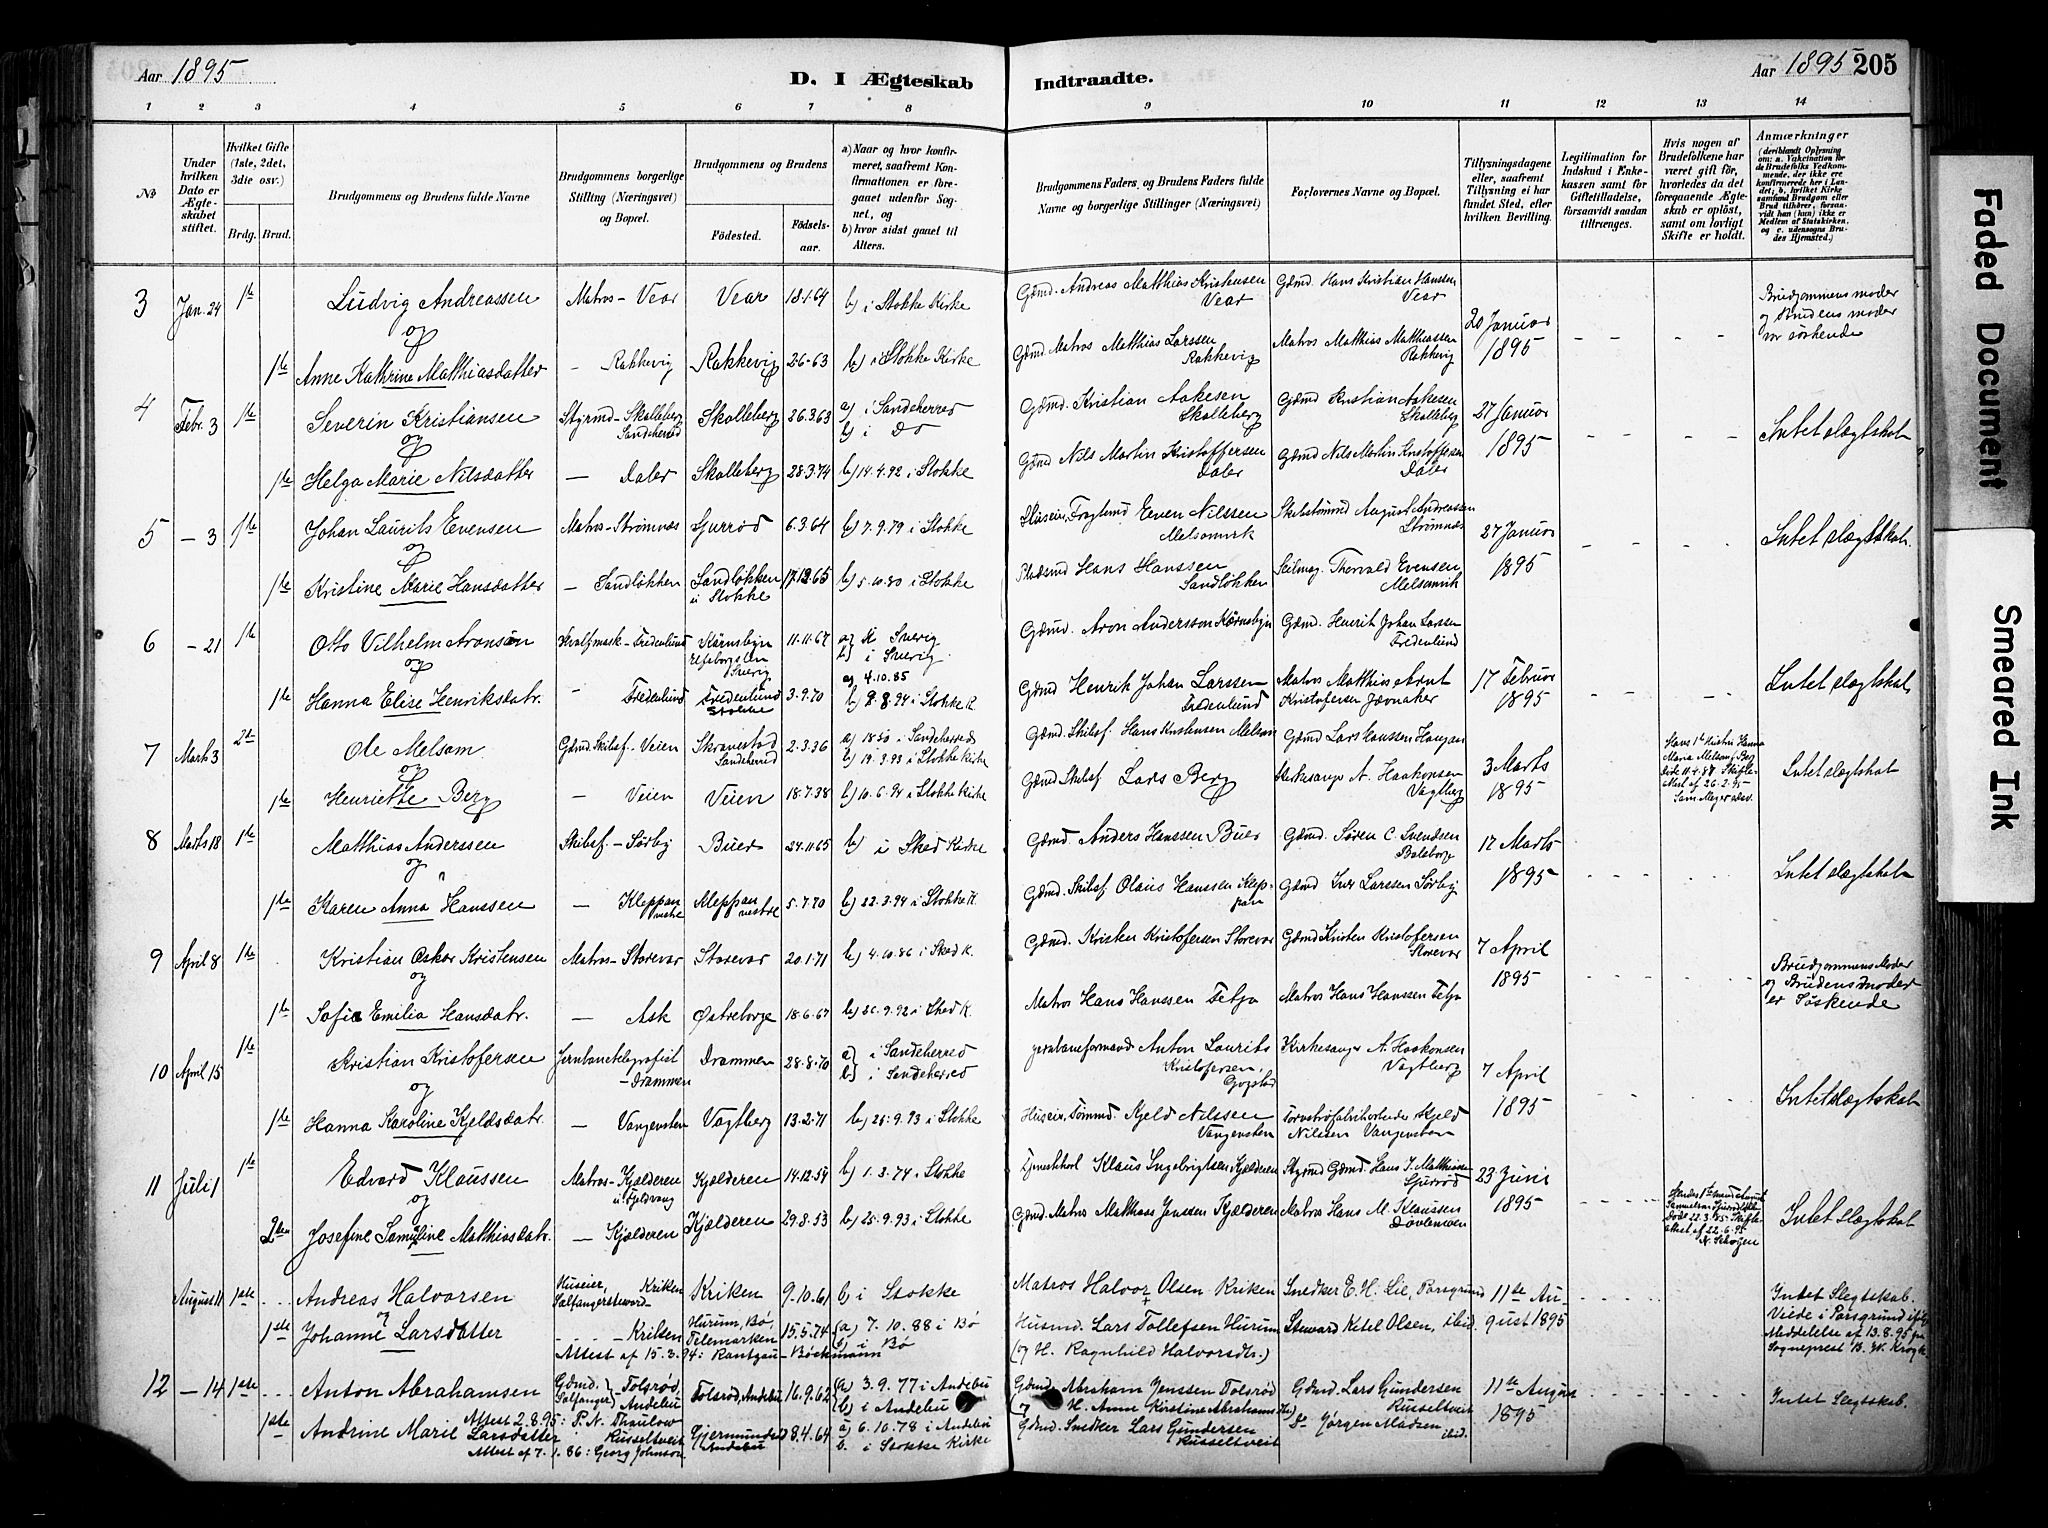 Aar 1895
D. I Ægteskab Indtraadte.
Aar 1895 205
1 2 3 4 5 6 7 8 9 10 11 12 13 14
No
Under hvilken Dato er Ægteskabet stiftet.
Hvilket Gifte (1ste, 2det, 3die osv.)
Brdg. Brud.
Brudgommens og Brudens fulde Navne
Brudgommens borgerlige Stilling (Næringsvei) og Bopæl.
Brudgommens og Brudens
Fødested.
Fødselsaar.
a) Naar og hvor konfirmeret, saafremt Konfirmationen er foregaaet udenfor Sognet, og
b) hvor sidst gaaet til Alters.
Brudgommens Faders og Brudens Faders fulde Navne og borgerlige Stillinger (Næringsvei)
Forlovernes Navne og Bopæl.
Tillysningsdagene eller, saafremt Tillysning ei har fundet Sted, efter hvilken Bevilling.
Legitimation for Indskud i Enkekassen samt for Giftetilladelse, forsaavidt saadan tiltrænges.
Hvis nogen af Brudefolkene har været gift før, hvorledes da det foregaaende Ægteskab er opløst, samt om lovligt Skifte er holdt.
Anmærkninger (deriblandt Oplysning om: a. Vakcination for de Brudefolks Vedkommende, der ikke ere konfirmerede her i Landet; b. hvilket Kirkesamfund Brudgom eller Brud tilhører, forsaavidt han (hun) ikke er Medlem af Statskirken, og c. udensogns Brudes Hjemsted.)
3 Jan. 24 1ste Ludvig Andreassen Matros - Vear Vear 18.1.64 b) i Stokke Kirke Gdmd. Andreas Matthias Kristensen Vear Gdmd. Hans Kristian Hanssen Vear 20 Januar 1895 Brudgommens moder og Brudens moder var søskende
og
1ste Anne Kathrine Matthiasdatter - Rakkevig Rakkevig 26-63 b) i Stokke Kirke Gdmd. Matros Matthias Larssen Rakkevig Matros Matthias Matthiassen Rakkevig
4 Febr. 3 1ste Severin Kristiansen Styrmd - Skolleberg Sandeherred Skolleberg 26.3.63 a) i Sandeherred b) i Do Gdmd. Kristian Aakesen Skolleberg Gdmd Kristian Aakesen Skolleberg 27 Januar 1895 Intet slægtskab
og
1ste Helga Marie Nilsdatter - Daler Skolleberg 28.3.74 b) 14.4.92 i Stokke Gdmd Nils Martin Kristoffersen Daler Gdmd Nils Martin Kristoffersen Daler
5 - 3 1ste Johan Laurits Evensen Matros - Strømnæs Gjurrød 6.3.64 b) 7.9.79 i Stokke Even Nilssen Melsomvik August Andreassen Strømnæs 27 Januar 1895 Intet slægtskab.
og
1ste Kristine Marie Hansdatter - Sandløkken Sandløkken i Stokke 17.12.65 b) 5.10.80 i Stokke Hans Hanssen Sandløkken Seilmag. Thorvald Evensen Melsomvik
6 - 21 1ste Otto Vilhelm Aronsön - Fredenlund Sverig 11.11.67 a) i Sverig b) i Sverig Gdmd. Aron Andersson Gdmd. Henrik Johan Larssen Fredenlund 17 Februar 1895 Intet slægtskab
og
1ste Hanna Elise Henriksdatr. - Fredenlund Fredenlund Stokke 3.9.70 a) 4.10.85 b) 8.8.94 i Stokke K. Gdmd Henrik Johan Larssen Fredenlund Matros Matthias Arnt Kristofersen Jævnaker
7 Marts 3 2det Ole Melsom Gdmd. Skibsf. - Veien Skravestad Sandeherred 2.3.36 a) 1850 i Sandeherred b) 19.3.93 i Stokke Kirke Gdmd. Skibsf. Hans Kristensen Melsom Gdmd Lars Hanssen Haugan 3 Marts 1895 Hans 1ste Hustru Hanna Maria Melsom f. Berg Døde 11.4.87. Skifteattest af 26.2.95 Intet slægtskab
og
1ste Henriette Berg - Veien Veien 18.7.38 b) 10.6.94 i Stokke Kirke Gdmd Skibsf Lars Berg Kirkesanger A. Haakonsen Vagtberg
8 Marts 18 1ste Matthias Anderssen Skibsf - Sørby Buer 24.11.65 b) i Sked Kirke Gdmd. Anders Hanssen Buer Gdmd. Søren C. Svendsen 17 Marts 1895 Intet slægtskab
og
1ste Karen Anna Hanssen - Kleppan vestre Kleppan vestre 5.7.70 b) 22.3.94 i Stokke K. Gdmd. Skibsf Olaus Hanssen Kleppan Gdmd Iver Larssen Sørby
9 April 8 1ste Kristian Oskar Kristensen Matros - Storevar Storevar 20.1.71 b) 4.10.86 i Skod K. Gdmd. Kristen Kristofersen Storevar Gdmd Kristen Kristofersen Storevar 7 April 1895 Brudgommens Moder og Brudens moder er Søskende
og
1ste Sofie Emilia Hansdatr. - Ask Østreborge 18.6.67 b) 30.9.92 i Skod K. Matros Hans Hanssen Feten Matros Hans Hanssen
10 April 15 1ste Kristian Kristofersen Jernbanetelegrafist - Drammen Drammen 28.8.70 a) i Sandeherred b) i Sandeherred Jernbaneformand Anton Laurits Kristofersen, Gogstad Kirkesanger A. Haakonsen Vagtberg 7 April 1895 Intet slægtskab
og
1ste Hanna Karoline Kjeldsdatr. - Vangensten Vagtberg 13.2.71 b) 25.9.93 i Stokke Huseier, Tømmd. Kjeld Nilssen Vangensten Kjeld Nilssen Vangensten
11 Juli 1 1ste Edvard Klaussen Matros - Kjælderen Kjælderen 14.12.59 b) 1.3.74 i Stokke Klaus Ingebrigtsen Kjælderen Styrmd Gdmd. Hans J. Matthiassen Gjurrød 23 Juni 1895 Intet slægtskab
og
2den Josefine Samuline Matthiasdatr. - Kjælderen Kjælderen 29.8.53 b) 25.9.93 i Stokke Gdmd. Matros Matthias Jenssen Kjælderen Matros Hans M. Klaussen
August 11 1ste Andreas Halvorsen Huseier, Kriken Kriken 9.10.61 b) i Stokke Matros Halvor Olsen Kriken Snedker E. H. Lie, Porsgrund 11te August 1895 Intet Slegtskab. Viede i Porsgrund ifølge Meddelelse af 13.8.95 fra Sogneprest B. W. Krogh
1ste Johanne Larsdatter - Kriken Hurum, Bø, Telemarken 15.5.74 a) 7.10.88 i Bø b) i Bø Husmd. Lars Tollefsen Hurum Steward Kittel Olsen, ibid.
Attest af 15.3.94: Rantzau-Bøckmann (og H. Ragnhild Halvorsdtr.)
12 - 14 1ste Anton Abrahamsen Gdmd. Salfanger - Tolsrød, Andebu Tolsrød, Andebu 16.9.62 a) 3.9.77 i Andebu b) i Andebu Gdmd. Abraham Jenssen Tolsrød og H. Anne Kirstine Abrahamsdtr. Gdmd. Lars Gundersen Russeltveit 11te August 1895 Intet Slegtskab.
Attest 2.8.95: P. N. Thaulow
1ste Andrine Marie Larsdatter Russeltveit Gjermundrød Andebu 8.4.64 a) 6.10.78 i Andebu b. i Stokke Kirke Gdmd. Snedker Lars Gundersen Russeltveit Do Jørgen Madsen ibid.
Attest af 7.1.86: Georg Johnson.
Faded Document
Smeared Ink